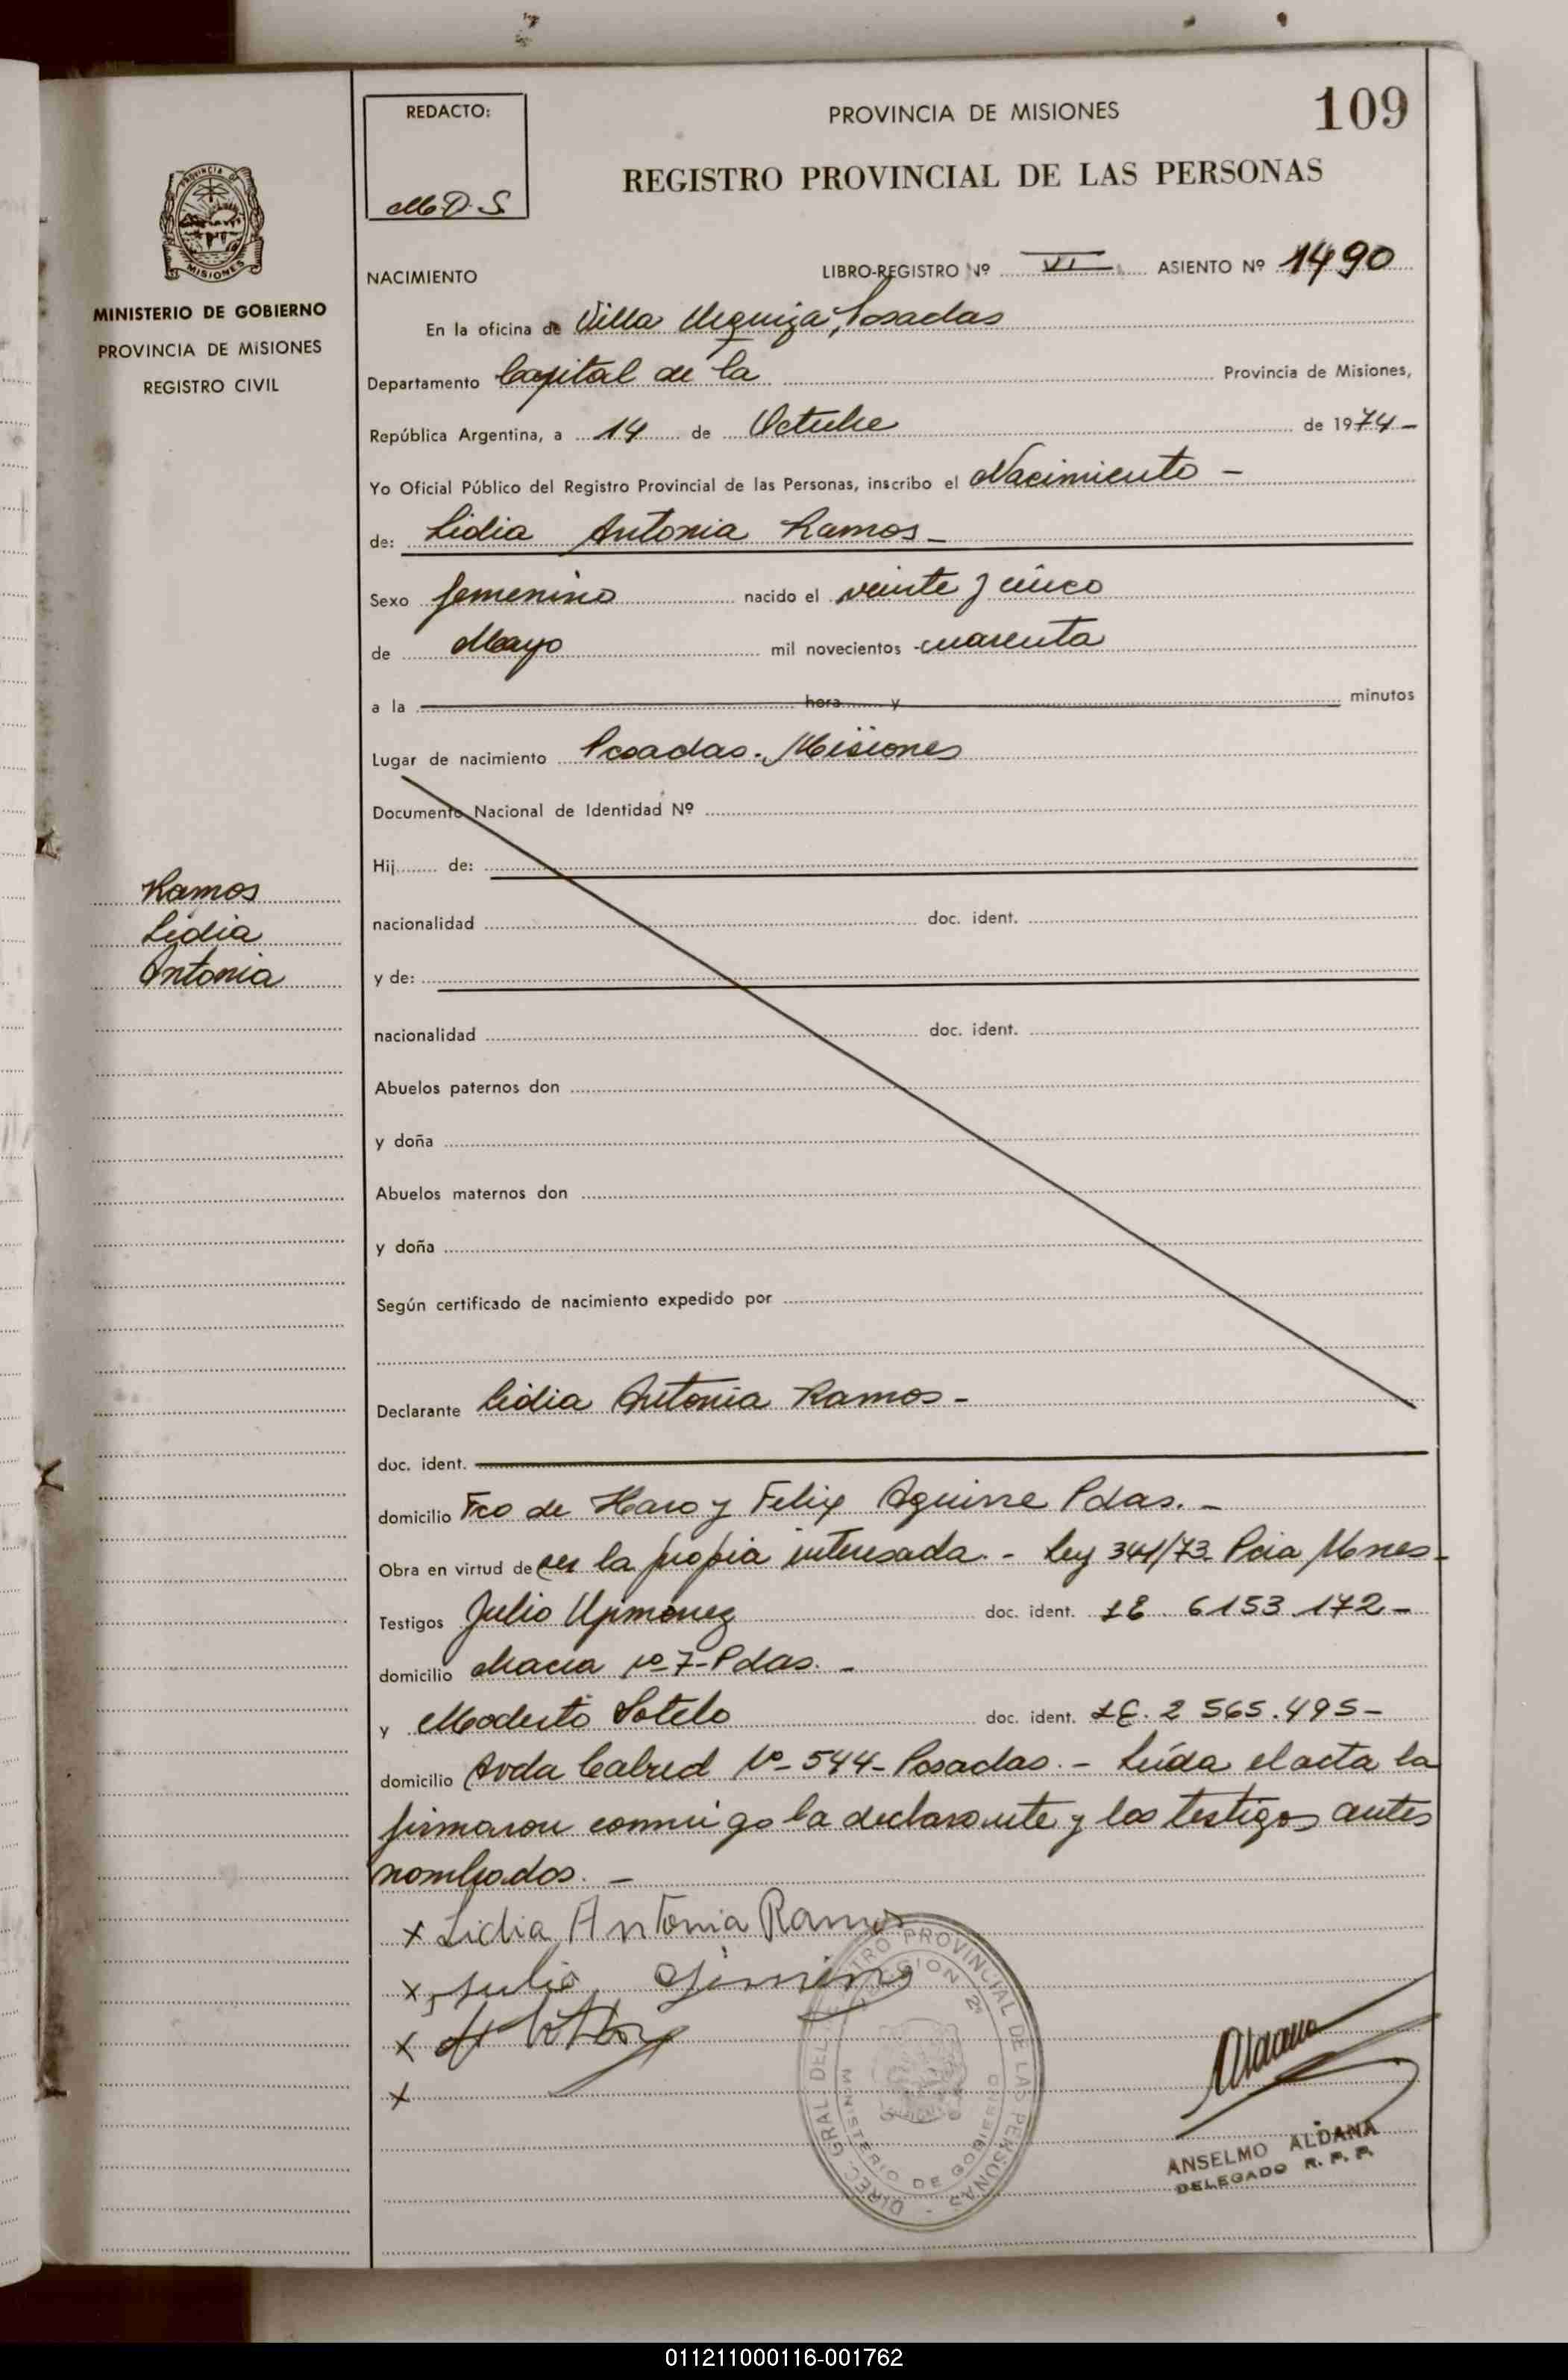 109
REDACTO:
M.D.S
PROVINCIA DE MISIONES
REGISTRO PROVINCIAL DE LAS PERSONAS
PROVINCIA DE
MISIONES
MINISTERIO DE GOBIERNO
PROVINCIA DE MISIONES
REGISTRO CIVIL
NACIMIENTO
LIBRO-REGISTRO Nº VI ASIENTO Nº 1490
En la oficina de Villa Urquiza, Posadas
Departamento Capital de la Provincia de Misiones,
República Argentina, a 14 de Octubre de 1974-
Yo Oficial Público del Registro Provincial de las Personas, inscribo el Nacimiento -
de: Lidia Antonia Ramos -
Sexo femenino nacido el veinte y cinco
de Mayo mil novecientos cuarenta
a la hora y minutos
Lugar de nacimiento Posadas. Misiones
Documento Nacional de Identidad Nº
Hij de:
nacionalidad doc. ident.
y de:
nacionalidad doc. ident.
Abuelos paternos don
y doña
Abuelos maternos don
y doña
Según certificado de nacimiento expedido por
Ramos
Lidia
Antonia
Declarante Lidia Antonia Ramos -
doc. ident.
domicilio Fco de Haro y Felix Aguirre Pdas. -
Obra en virtud de ser la propia interesada. - Ley 341/73 Pcia Mnes -
Testigos Julio doc. ident. LE. 6153.172 -
domicilio Chacra Nº 7 - Pdas. -
y Modesto Sotelo doc. ident. LE. 2 565.495 -
domicilio Avda Cabred Nº - 544 - Posadas. - Leída el acta la
firmaron conmigo la declarante y los testigos antes
nombrados. -
x Lidia Antonia Ramos
x Julio
x
x
DIREC. GRAL. DEL REGISTRO PROVINCIAL DE LAS PERSONAS -
MINISTERIO DE GOBIERNO
ANSELMO ALDANA
DELEGADO R. P. P.
011211000116-001762